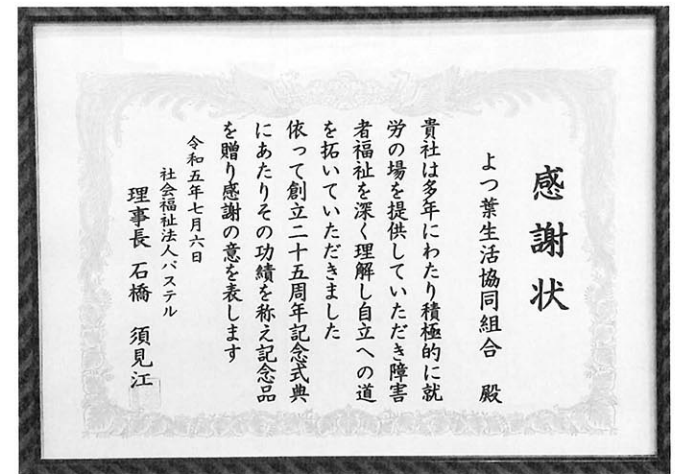 感謝状
よつ葉生活協同組合 殿
貴社は多年にわたり積極的に就
労の場を提供していただき障害
者福祉を深く理解し自立への道
を拓いていただきました
依って創立二十五周年記念式典
にあたりその功績を称え記念品
を贈り感謝の意を表します
令和五年七月六日
社会福祉法人パステル
理事長 石橋 須見江